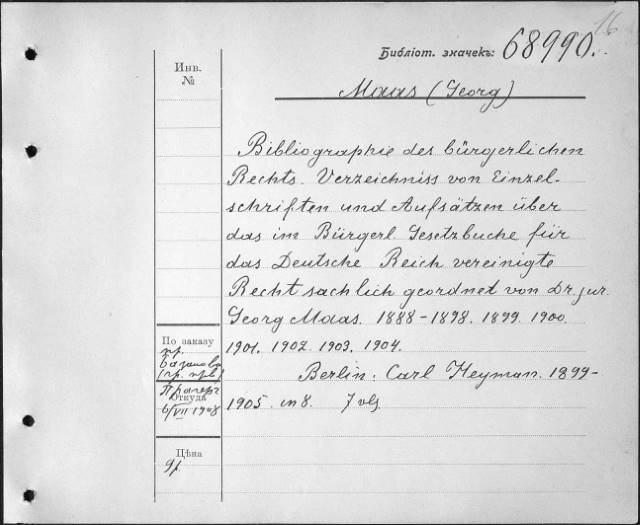 16
Библіот. значекъ: 68990.
Инв.
№
Maas (Georg)
Bibliographie des bürgerlichen
Rechts. Verzeichniss von Einzel-
schriften und Aufsätzen über
das im Bürgerl. Gesetzbuche für
das Deutsche Reich vereinigte
Recht sachlich geordnet von Dr. jur.
Georg Maas. 1888-1898. 1899. 1900.
1901. 1902. 1903. 1904.
Berlin: Carl Heyman. 1899-
1905. in 8. 7 vls.
По заказу
пр.
Откуда
6/VII 1908
Цѣна